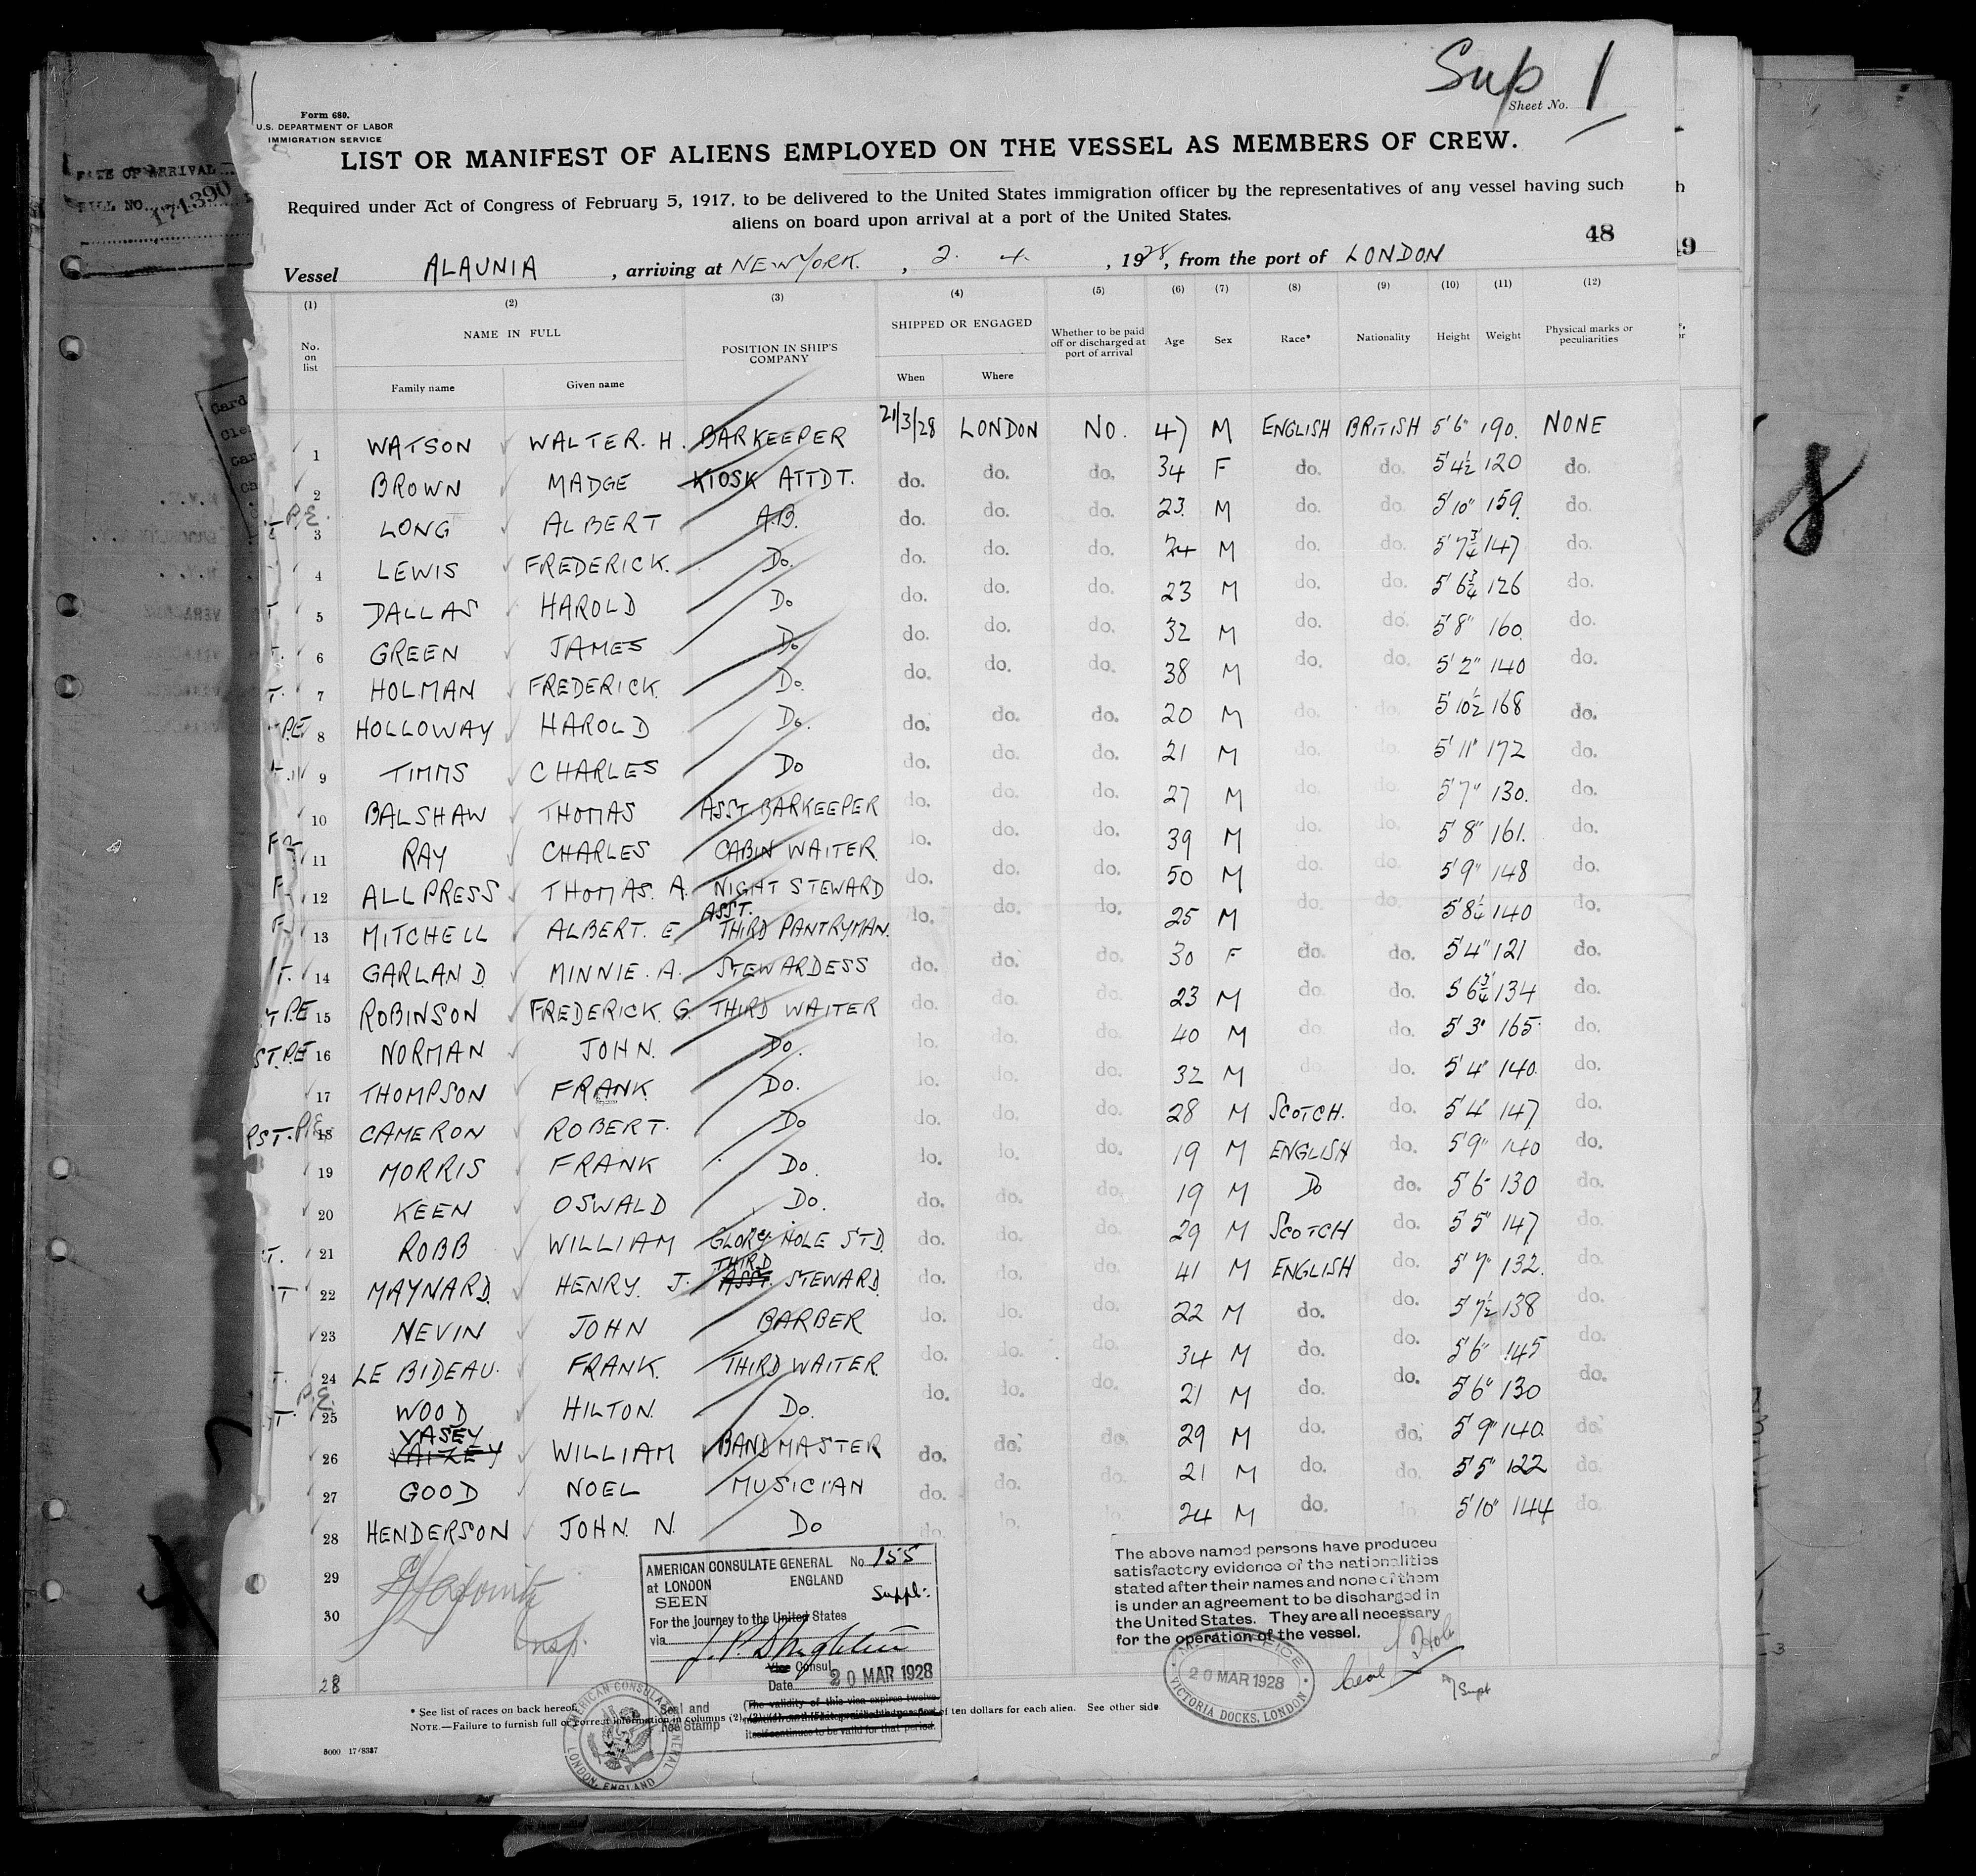 Sup 1
Sheet No.
Form 680.
U.S. DEPARTMENT OF LABOR
IMMIGRATION SERVICE
LIST OR MANIFEST OF ALIENS EMPLOYED ON THE VESSEL AS MEMBERS OF CREW.
Required under Act of Congress of February 5, 1917, to be delivered to the United States immigration officer by the representatives of any vessel having such
aliens on board upon arrival at a port of the United States.
48
49
Vessel ALAUNIA, arriving at NEW YORK., 2. 4., 1928, from the port of LONDON
(1) (2) (3) (4) (5) (6) (7) (8) (9) (10) (11) (12)
No. on list NAME IN FULL POSITION IN SHIP'S COMPANY SHIPPED OR ENGAGED Whether to be paid off or discharged at port of arrival Age Sex Race* Nationality Height Weight Physical marks or peculiarities
Family name Given name When Where
1 WATSON WALTER. H. BARKEEPER 21/3/28 LONDON NO. 47 M ENGLISH BRITISH 5'6" 190. NONE
2 BROWN MADGE KIOSK ATTDT. do. do. do. 34 F do. do. 5'4½ 120 do.
P.E. 3 LONG ALBERT A.B. do. do. do. 23. M do. do. 5'10" 159. do.
4 LEWIS FREDERICK. Do. do. do. do. 24 M do. do. 5'7¾ 147 do.
T 5 DALLAS HAROLD Do do. do. do. 23 M do. do. 5'6¾ 126 do.
T. 6 GREEN JAMES Do do. do. do. 32 M do. do. 5'8" 160. do.
T. 7 HOLMAN FREDERICK. Do. do. do. do. 38 M do. do. 5'2" 140 do.
PE 8 HOLLOWAY HAROLD Do. do. do. do. 20 M do. do. 5'10½ 168 do.
9 TIMMS CHARLES Do do. do. do. 21 M do. do. 5'11" 172 do.
10 BALSHAW THOMAS ASST. BARKEEPER do. do. do. 27 M do. do. 5'7" 130. do.
11 RAY CHARLES CABIN WAITER. do. do. do. 39 M do. do. 5'8" 161. do.
12 ALLPRESS THOMAS. A. NIGHT STEWARD do. do. do. 50 M do. do. 5'9" 148 do.
13 MITCHELL ALBERT. E ASST. THIRD PANTRYMAN. do. do. do. 25 M do. do. 5'8¼ 140 do.
T. 14 GARLAND MINNIE. A. STEWARDESS do. do. do. 30 F do. do. 5'4" 121 do.
T PE 15 ROBINSON FREDERICK. G. THIRD WAITER do. do. do. 23 M do. do. 5'6¾ 134 do.
ST. P.E 16 NORMAN JOHN. Do. do. do. do. 40 M do. do. 5'3" 165. do.
17 THOMPSON FRANK Do. do. do. do. 32 M do. do. 5'4" 140. do.
RST. P.E. 18 CAMERON ROBERT. Do do. do. do. 28 M SCOTCH. do. 5'4 147 do.
19 MORRIS FRANK Do. do. do. do. 19 M ENGLISH do. 5'9" 140 do.
20 KEEN OSWALD Do. do. do. do. 19 M Do do. 5'6 130 do.
T. 21 ROBB WILLIAM GLORY HOLE STD. do. do. do. 29 M SCOTCH do. 5'5" 147 do.
T 22 MAYNARD. HENRY. J. THIRD ASST. STEWARD. do. do. do. 41 M ENGLISH do. 5'7" 132. do.
23 NEVIN JOHN BARBER do. do. do. 22 M do. do. 5'7½ 138 do.
T. 24 LE BIDEAU. FRANK. THIRD WAITER. do. do. do. 34 M do. do. 5'6" 145 do.
T. P.E. 25 WOOD HILTON. Do. do. do. do. 21 M do. do. 5'6" 130 do.
26 VASEY VAIZEY WILLIAM BANDMASTER do. do. do. 29 M do. do. 5'9" 140. do.
27 GOOD NOEL MUSICIAN do. do. do. 21 M do. do. 5'5" 122 do.
28 HENDERSON JOHN. N. Do do. do. do. 24 M do. do. 5'10" 144 do.
29
30
Insp.
28
AMERICAN CONSULATE GENERAL No. 155
at LONDON ENGLAND
SEEN Suppl:
For the journey to the United States
via
Vice Consul
Date 20 MAR 1928
(The validity of this visa expires twelve
itself continues to be valid for that period.
Seal and
Fee Stamp
AMERICAN CONSULATE GENERAL
LONDON, ENGLAND
The above named persons have produced
satisfactory evidence of the nationalities
stated after their names and none of them
is under an agreement to be discharged in
the United States. They are all necessary
for the operation of the vessel.
20 MAR 1928
VICTORIA DOCKS, LONDON
* See list of races on back hereof.
NOTE.—Failure to furnish full or correct information in columns (2), of ten dollars for each alien. See other side.
5000 17/8337
DATE OF ARRIVAL
BILL NO. 171390
8